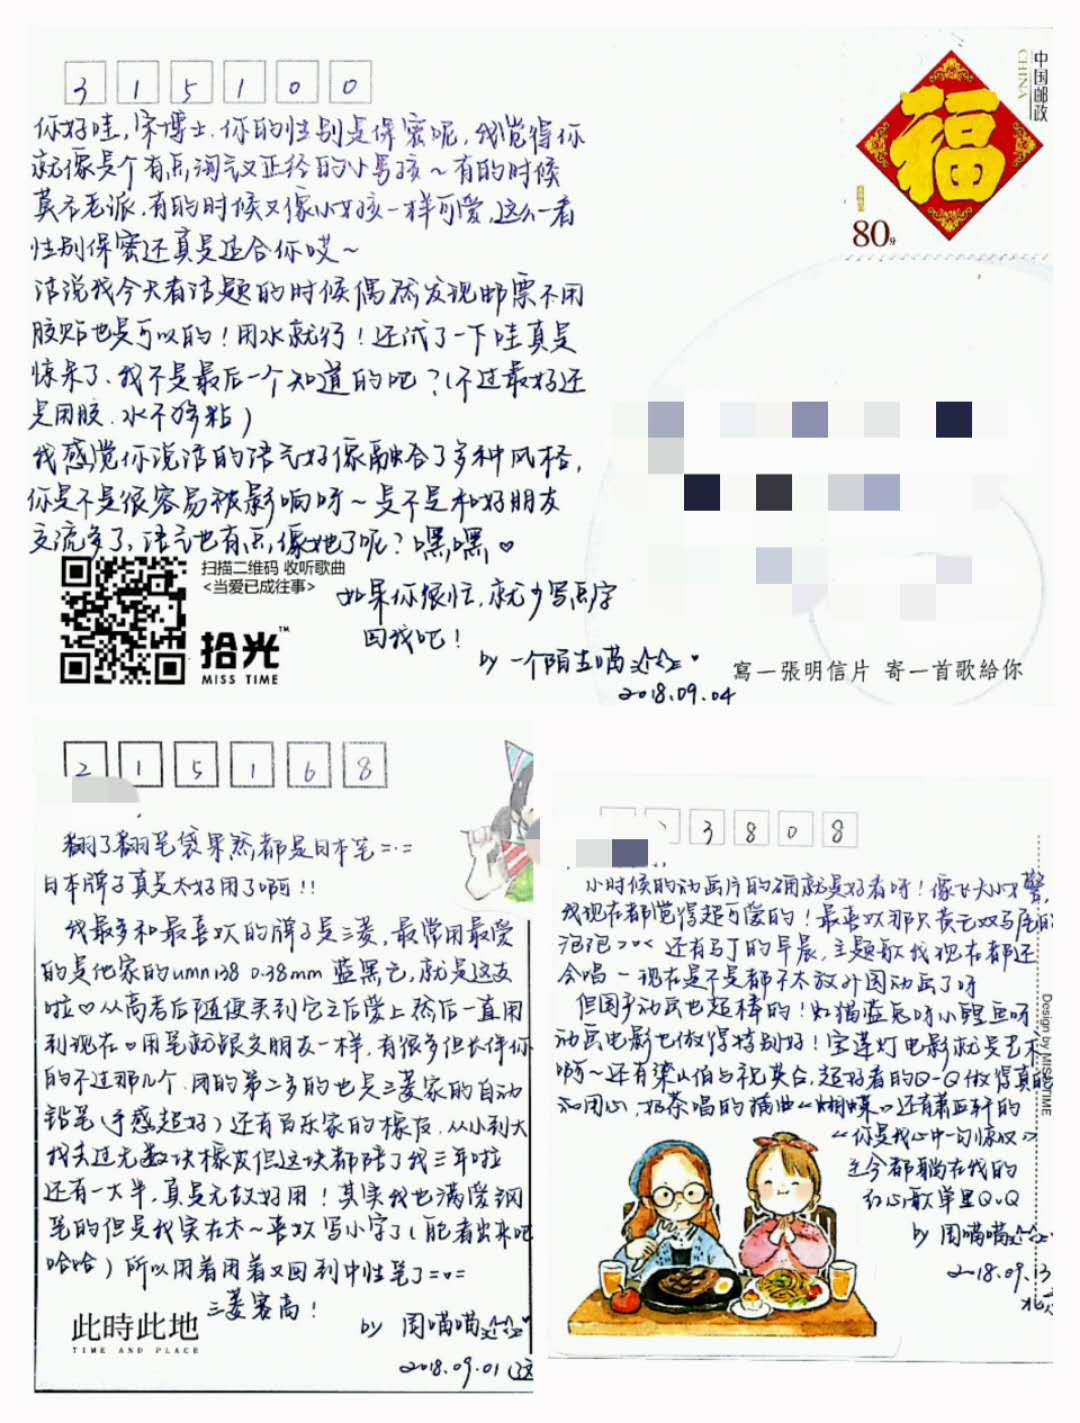 315100
中国邮政
CHINA
福
80分
你好哇，宋博士，你的性别是保密呢，我觉得你
就像是个有点淘气又正经的小男孩～有的时候
莫名老派，有的时候又像小女孩一样可爱，这么一看
性别保密还真是适合你哎～
话说我今天看话题的时候偶然发现邮票不用
胶贴也是可以的！用水就行！还试了一下哇真是
惊呆了、我不是最后一个知道的吧？（不过最好还
是用胶．水不够粘）
我感觉你说话的语气好像融合了多种风格，
你是不是很容易被影响呀～是不是和好朋友
交流多了，语气也有点像她了呢？嘿嘿♡
如果你很忙，就少写点字
回我吧！
by 一个陌生喵
2018.09.04
扫描二维码 收听歌曲
<当爱已成往事>
拾光™
MISS TIME
寫一張明信片 寄一首歌給你
215168
翻了翻笔袋果然都是日本笔=.=
日本牌子真是太好用了啊!!
我最多和最喜欢的牌子是三菱，最常用最爱
的是他家的umn138 0.38mm 蓝黑色，就是这支
啦♡从高考后随便买到它之后爱上然后一直用
到现在。用笔就跟交朋友一样，有很多但长伴你
的不过那几个．用的第二多的也是三菱家的自动
铅笔（手感超好）还有百乐家的橡皮．从小到大
我丢过无数块橡皮但这块都陪了我三年啦
还有一大半，真是无敌好用！其实我也满爱钢
笔的但是我实在太～喜欢写小字了（能看出来吧
哈哈）所以用着用着又回到中性笔了=v=
三菱赛高！
by 周喵喵
2018.09.01（这
此時此地
TIME AND PLACE
3808
小时候的动画片的确就是好看呀！像飞天小女警，
我现在都觉得超可爱的！最喜欢那只黄毛双马尾的
泡泡>v< 还有马丁的早晨，主题歌我现在都还
会唱－现在是不是都不太放外国动画了呀
但国产动画也超棒的！如猫蓝兔呀小鲤鱼呀
动画电影也做得特别好！宝莲灯电影就是艺术
啊～还有梁山伯与祝英台，超好看的Q-Q做得真的
用心，奶茶唱的插曲《蝴蝶》还有萧亚轩的
《你是我心中一句惊叹》
至今都躺在我的
红心歌单里QvQ
by 周喵喵
2018.09.13
北京
Design by MISS TIME